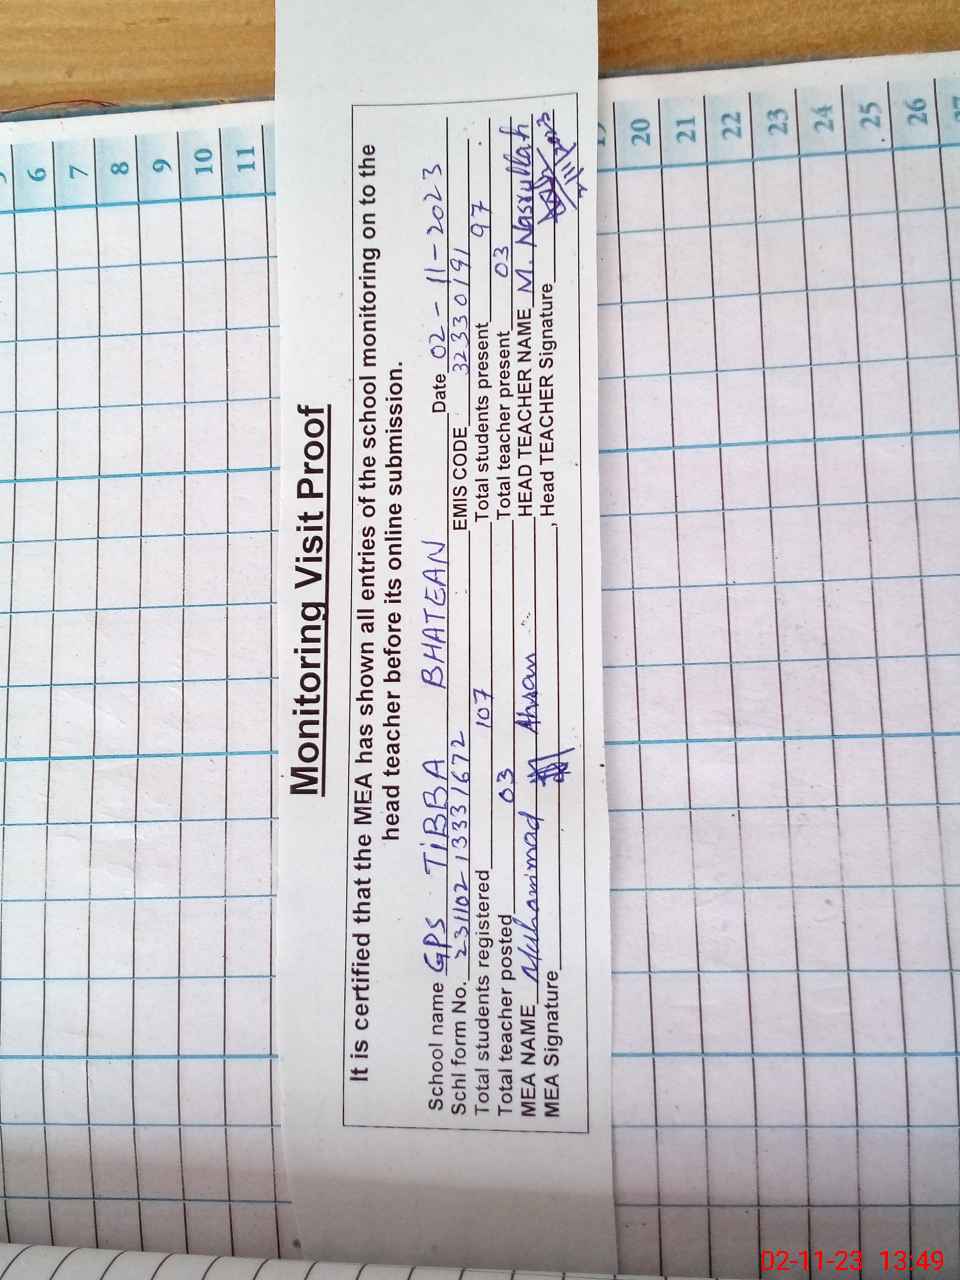 Monitoring Visit Proof
It is certified that the MEA has shown all entries of the school monitoring on to the
head teacher before its online submission.
School name GPS TiBBA BHATEAN Date 02-11-2023
Schl form No. 231102133331672 EMIS CODE 32330191
Total students registered 107 Total students present 97
Total teacher posted 03 Total teacher present 03
MEA NAME Muhammad Ahsan HEAD TEACHER NAME M. Nasrullah
MEA Signature , Head TEACHER Signature
2/11/2023
6
7
8
9
10
11
20
21
22
23
24
25
26
27
02-11-23 13:49